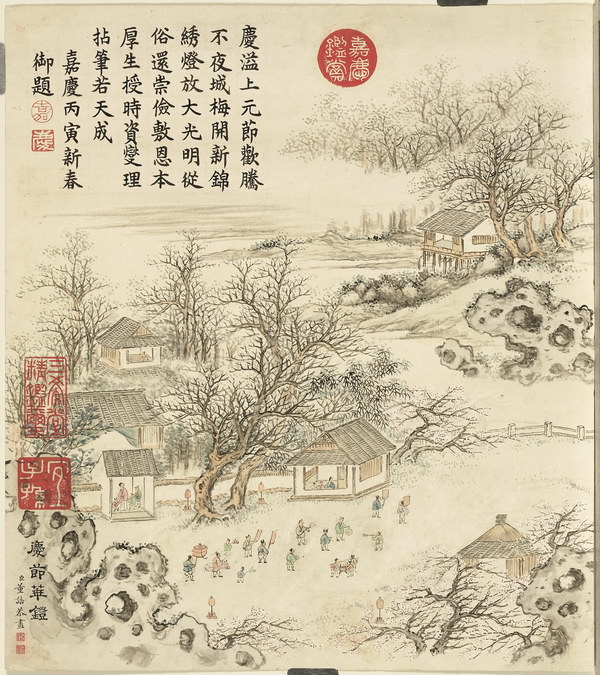 慶溢上元節歡騰
不夜城梅開新錦
綉燈放大光明從
俗還崇儉敷恩本
厚生授時資燮理
拈筆若天成
嘉慶丙寅新春
御題
嘉慶鑑賞
三希堂精鑑璽
宜子孫
慶節華鐙
臣董誥恭畫